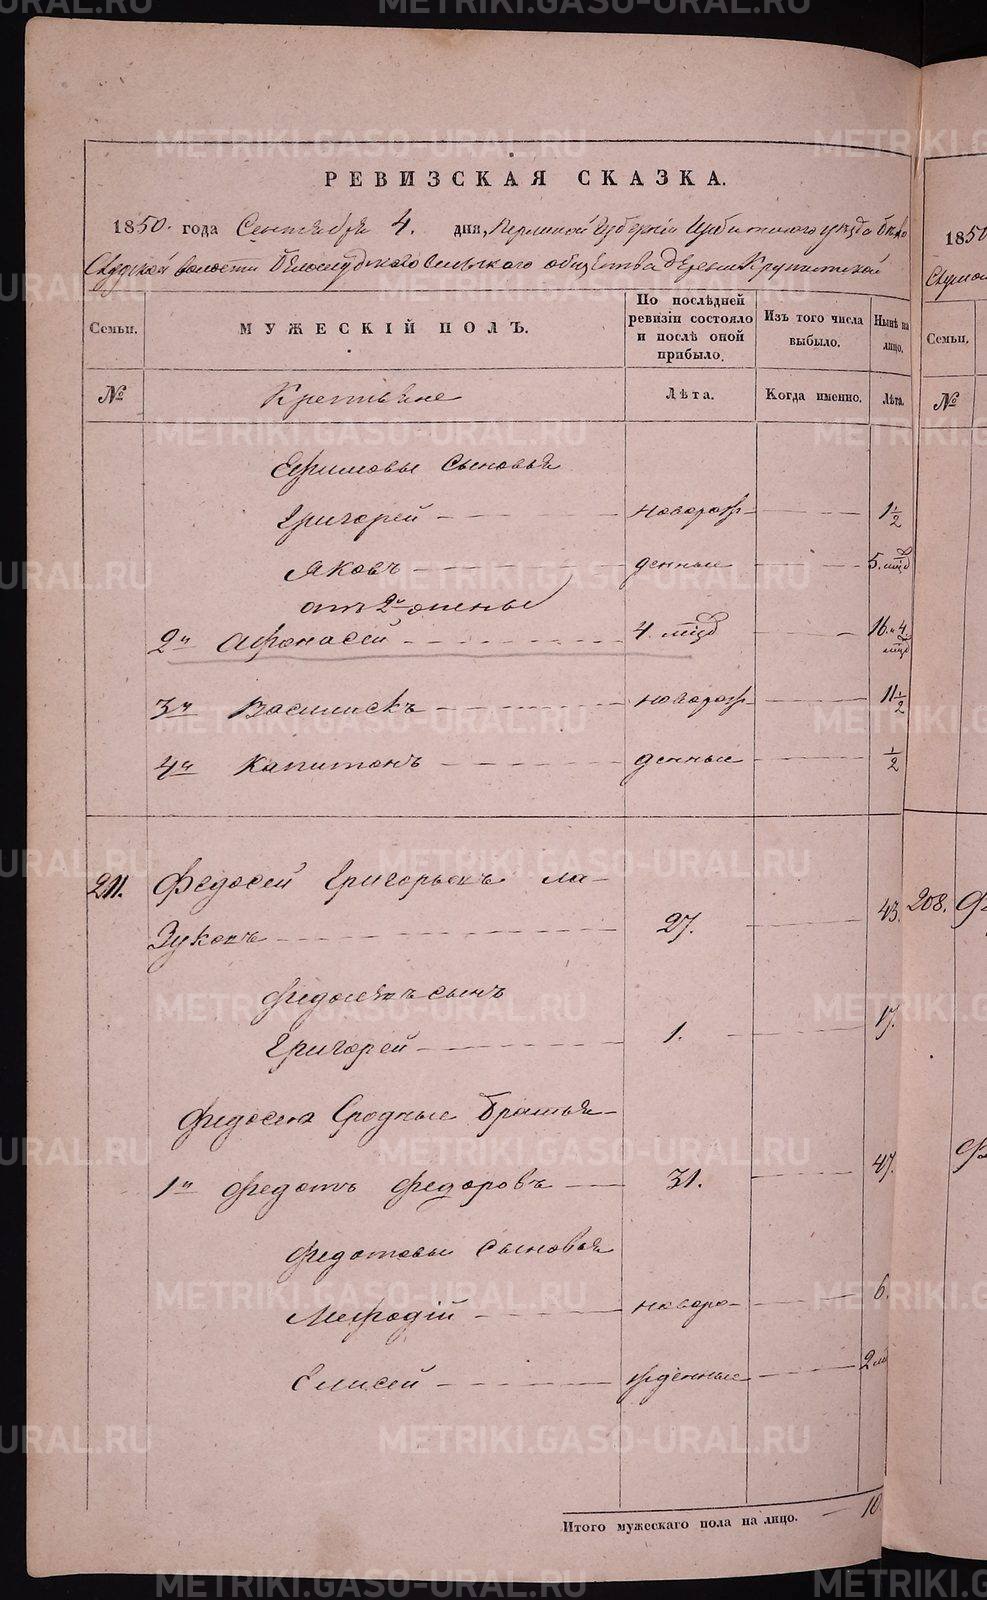 РЕВИЗСКАЯ СКАЗКА.
1850. года Сентября 4. дня, Пермской Губернии Ирбитского уѣзда Бѣло
Слудской волости Белослудского сельского общества деревни Крутихинской
Семьи.
МУЖЕСКІЙ ПОЛЪ.
По послѣдней ревизіи состояло и послѣ оной прибыло.
Изъ того числа выбыло.
Нынѣ на лицо.
№ Крестьяне Лѣта. Когда именно. Лѣта.
Ефимовы сыновья
Григорей новорож- 1 1/2
Яковъ денные 5. мѣд
отъ 2й жены
2й Афонасей 4. мѣц 16. и 4. мѣц
3й Василискъ новорож- 11 1/2
4й Капитонъ денные 1/2
211. Федосей Григорьевъ Ла-
зуковъ 27. 43.
Федосеевъ сынъ
Григорей 1. 17.
Федосея Сродные Братья
1й Федотъ Федоровъ 31. 47.
Федотовы сыновья
Мефодій новоро- 6.
Елисей жденные 2 мц
Итого мужескаго пола на лицо. 10.
1850
Семьи.
№
208.
METRIKI.GASO-URAL.RU